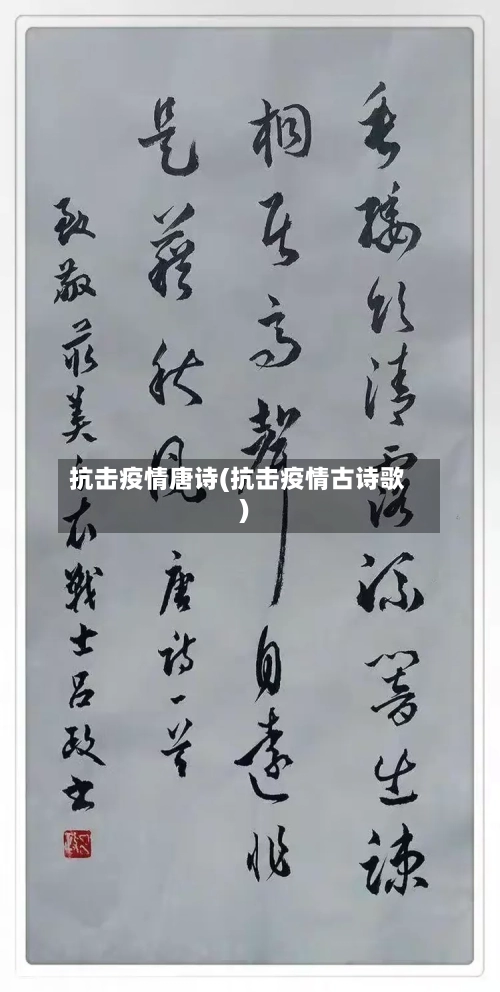 垂緌饮清露流響生疎
桐居高聲自遠非
是藉秋風 唐诗一首
致敬最美白衣戰士吕政书
抗击疫情唐诗(抗击疫情古诗歌
)